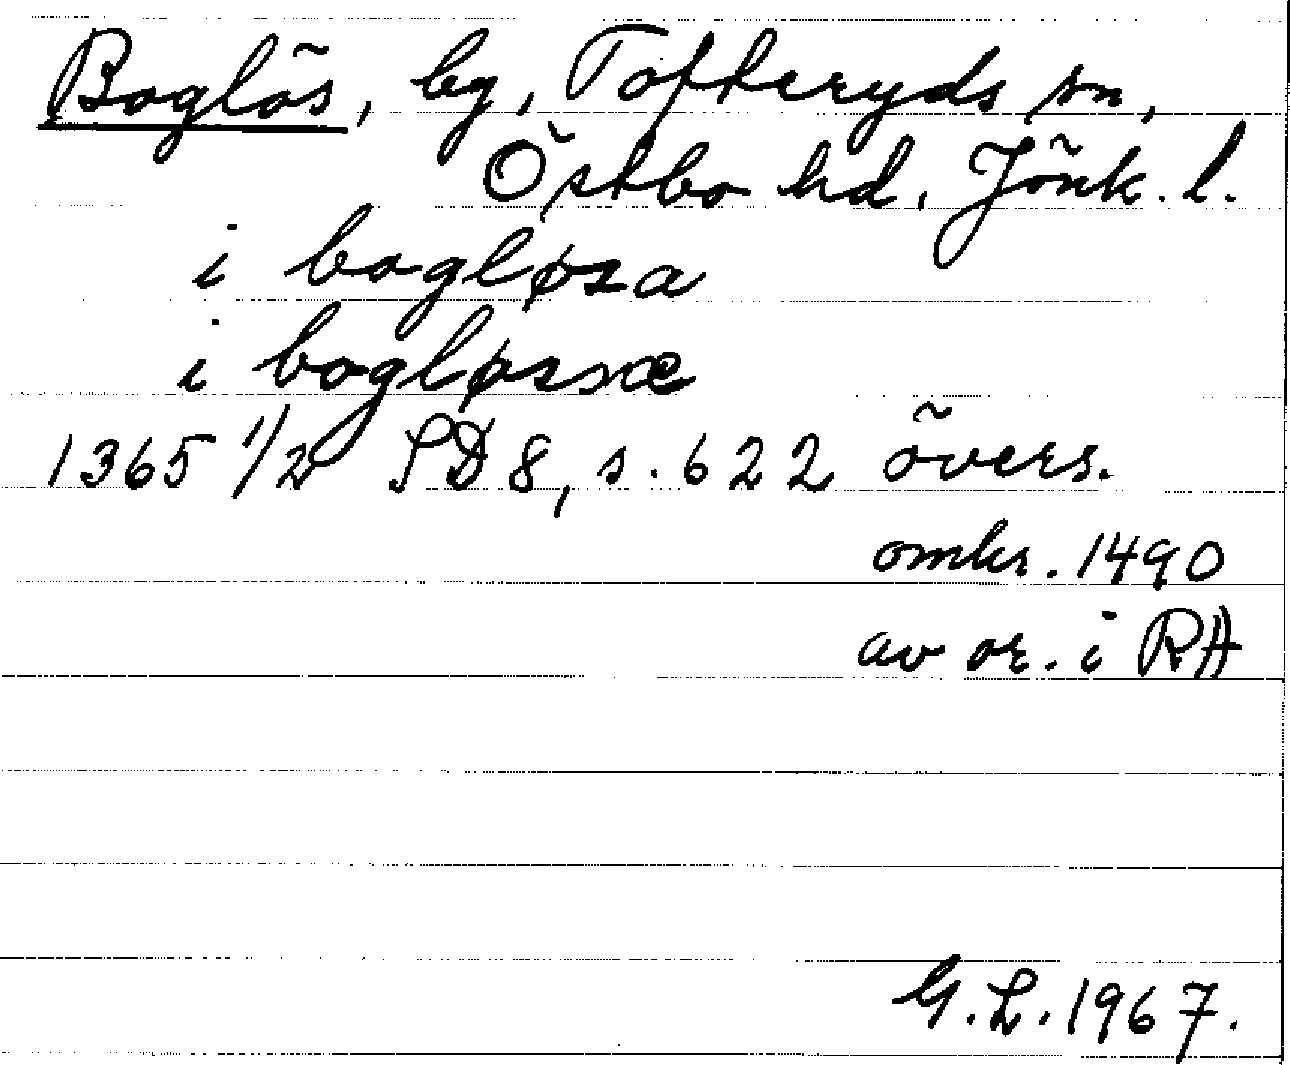 Boglös, by, Tofteryds sn,
Östbo hd, Jönk. l.
i bogløsa
i bogløssæ
1365 1/2 SD 8, s. 622 övers.
omkr. 1490
av or. i RA
G. L. 1967.